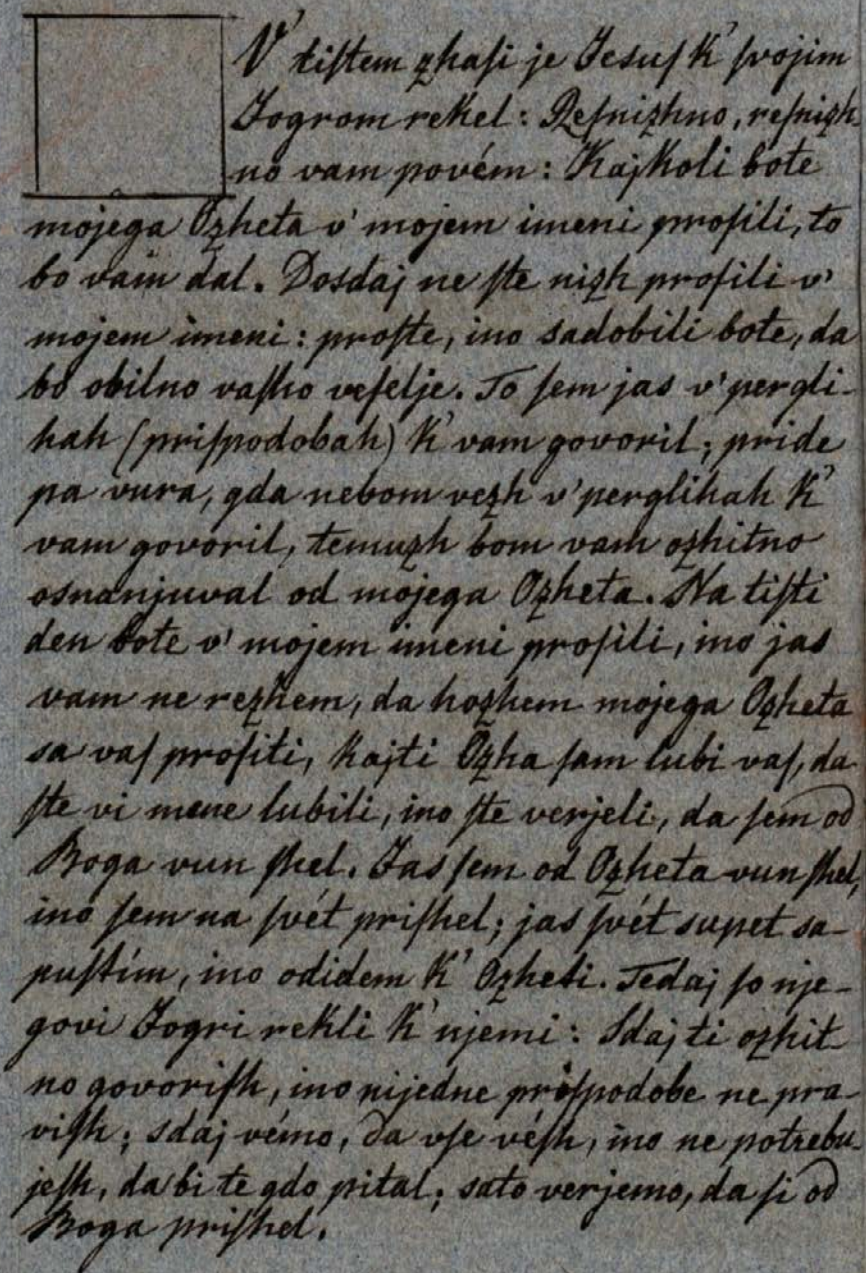 V' tiſtem zhaſi je Jesuſ k' ſvojim
Jogrom rekel: Reſnizhno, reſnizh-
no vam povém: Kajkoli bote
mojega Ozheta v' mojem imeni proſili, to
bo vam dal. Dosdaj ne ſte nizh proſili v'
mojem imeni: proſte, ino sadobili bote, da
bo obilno vaſho veſelje. To ſem jas v' pergli-
hah (priſpodobah) k' vam govoril; pride
pa vura, gda nebom vezh v' perglihah k'
vam govoril, temuzh bom vam ozhitno
osnanjuval od mojega Ozheta. Na tiſti
den bote v' mojem imeni proſili, ino jas
vam ne rezhem, da hozhem mojega Ozheta
sa vaſ proſiti, kajti Ozha ſam lubi vaſ, da
ſte vi mene lubili, ino ſte verjeli, da ſem od
Boga vun ſhel. Jas ſem od Ozheta vun ſhel,
ino ſem na ſvét priſhel; jas ſvét supet sa-
puſtím, ino odidem k' Ozheti. Tedaj ſo nje-
govi Jogri rekli k' njemi: Sdaj ti ozhit-
no govoriſh, ino nijedne priſpodobe ne pra-
viſh; sdaj vémo, da vſe véſh, ino ne potrebu-
jeſh, da bi te gdo pital; sato verjemo, da ſi od
Boga priſhel.